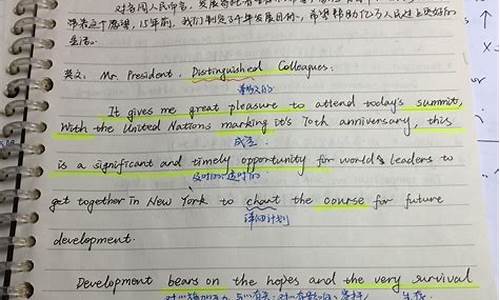 对各国人民而言,发展寄托着
带着这个愿望,15年前,我们制定了千年发展目标,希望帮助亿万人民过上更好的
生活。
英文: Mr. President, Distinguished Colleagues:
尊敬的
It gives me great pleasure to attend today's summit,
With the United Nations marking it's 70th anniversary, this
成立
is a significant and timely opportunity for world's leaders to
及时的;适时的
get together in New York to chart the course for future
详细计划
development.
Development bears on the hopes and the very survival
生存